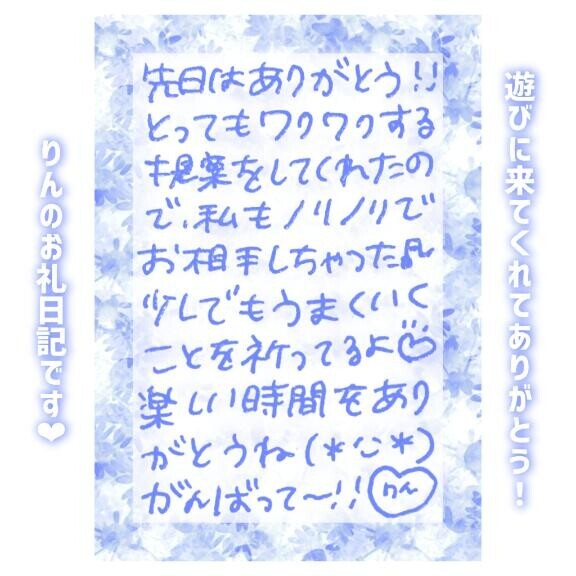 遊びに来てくれてありがとう!
先日はありがとう!!
とってもワクワクする
提案をしてくれたの
で、私もノリノリで
お相手しちゃった♬
少しでもうまくいく
ことを祈ってるよ♡
楽しい時間をあり
がとうね(*'ｰ'*)
がんばって〜!!
りん
りんのお礼日記です❤